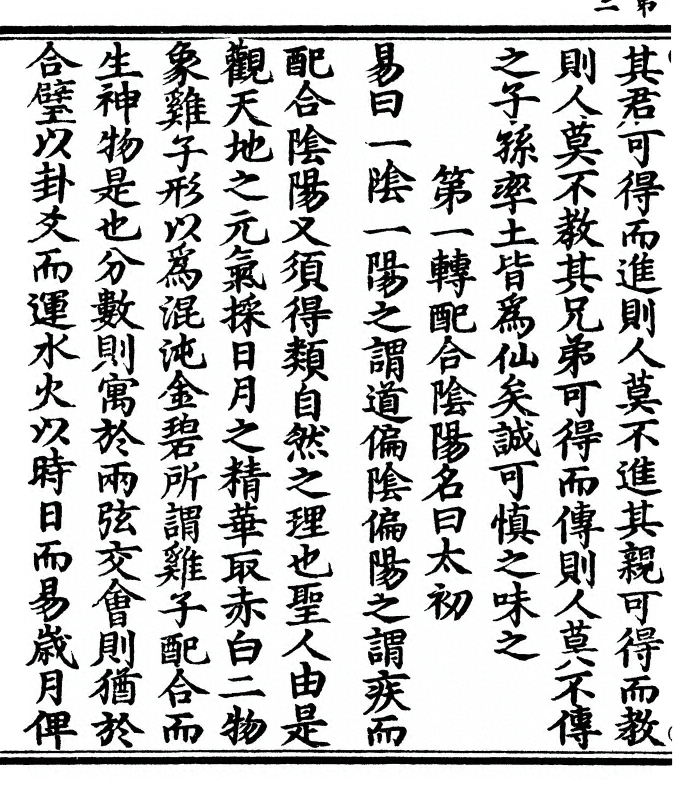 其君可得而進則人莫不進其親可得而教
則人莫不教其兄弟可得而傳則人莫不傳
之子孫率土皆爲仙矣誠可慎之味之
第一轉配合陰陽名曰太初
易曰一陰一陽之謂道偏陰偏陽之謂疾而
配合陰陽又須得類自然之理也聖人由是
觀天地之元氣採日月之精華取赤白二物
象雞子形以爲混沌金碧所謂雞子配合而
生神物是也分數則寓於兩弦交會則猶於
合璧以卦爻而運水火以時日而易歲月俾